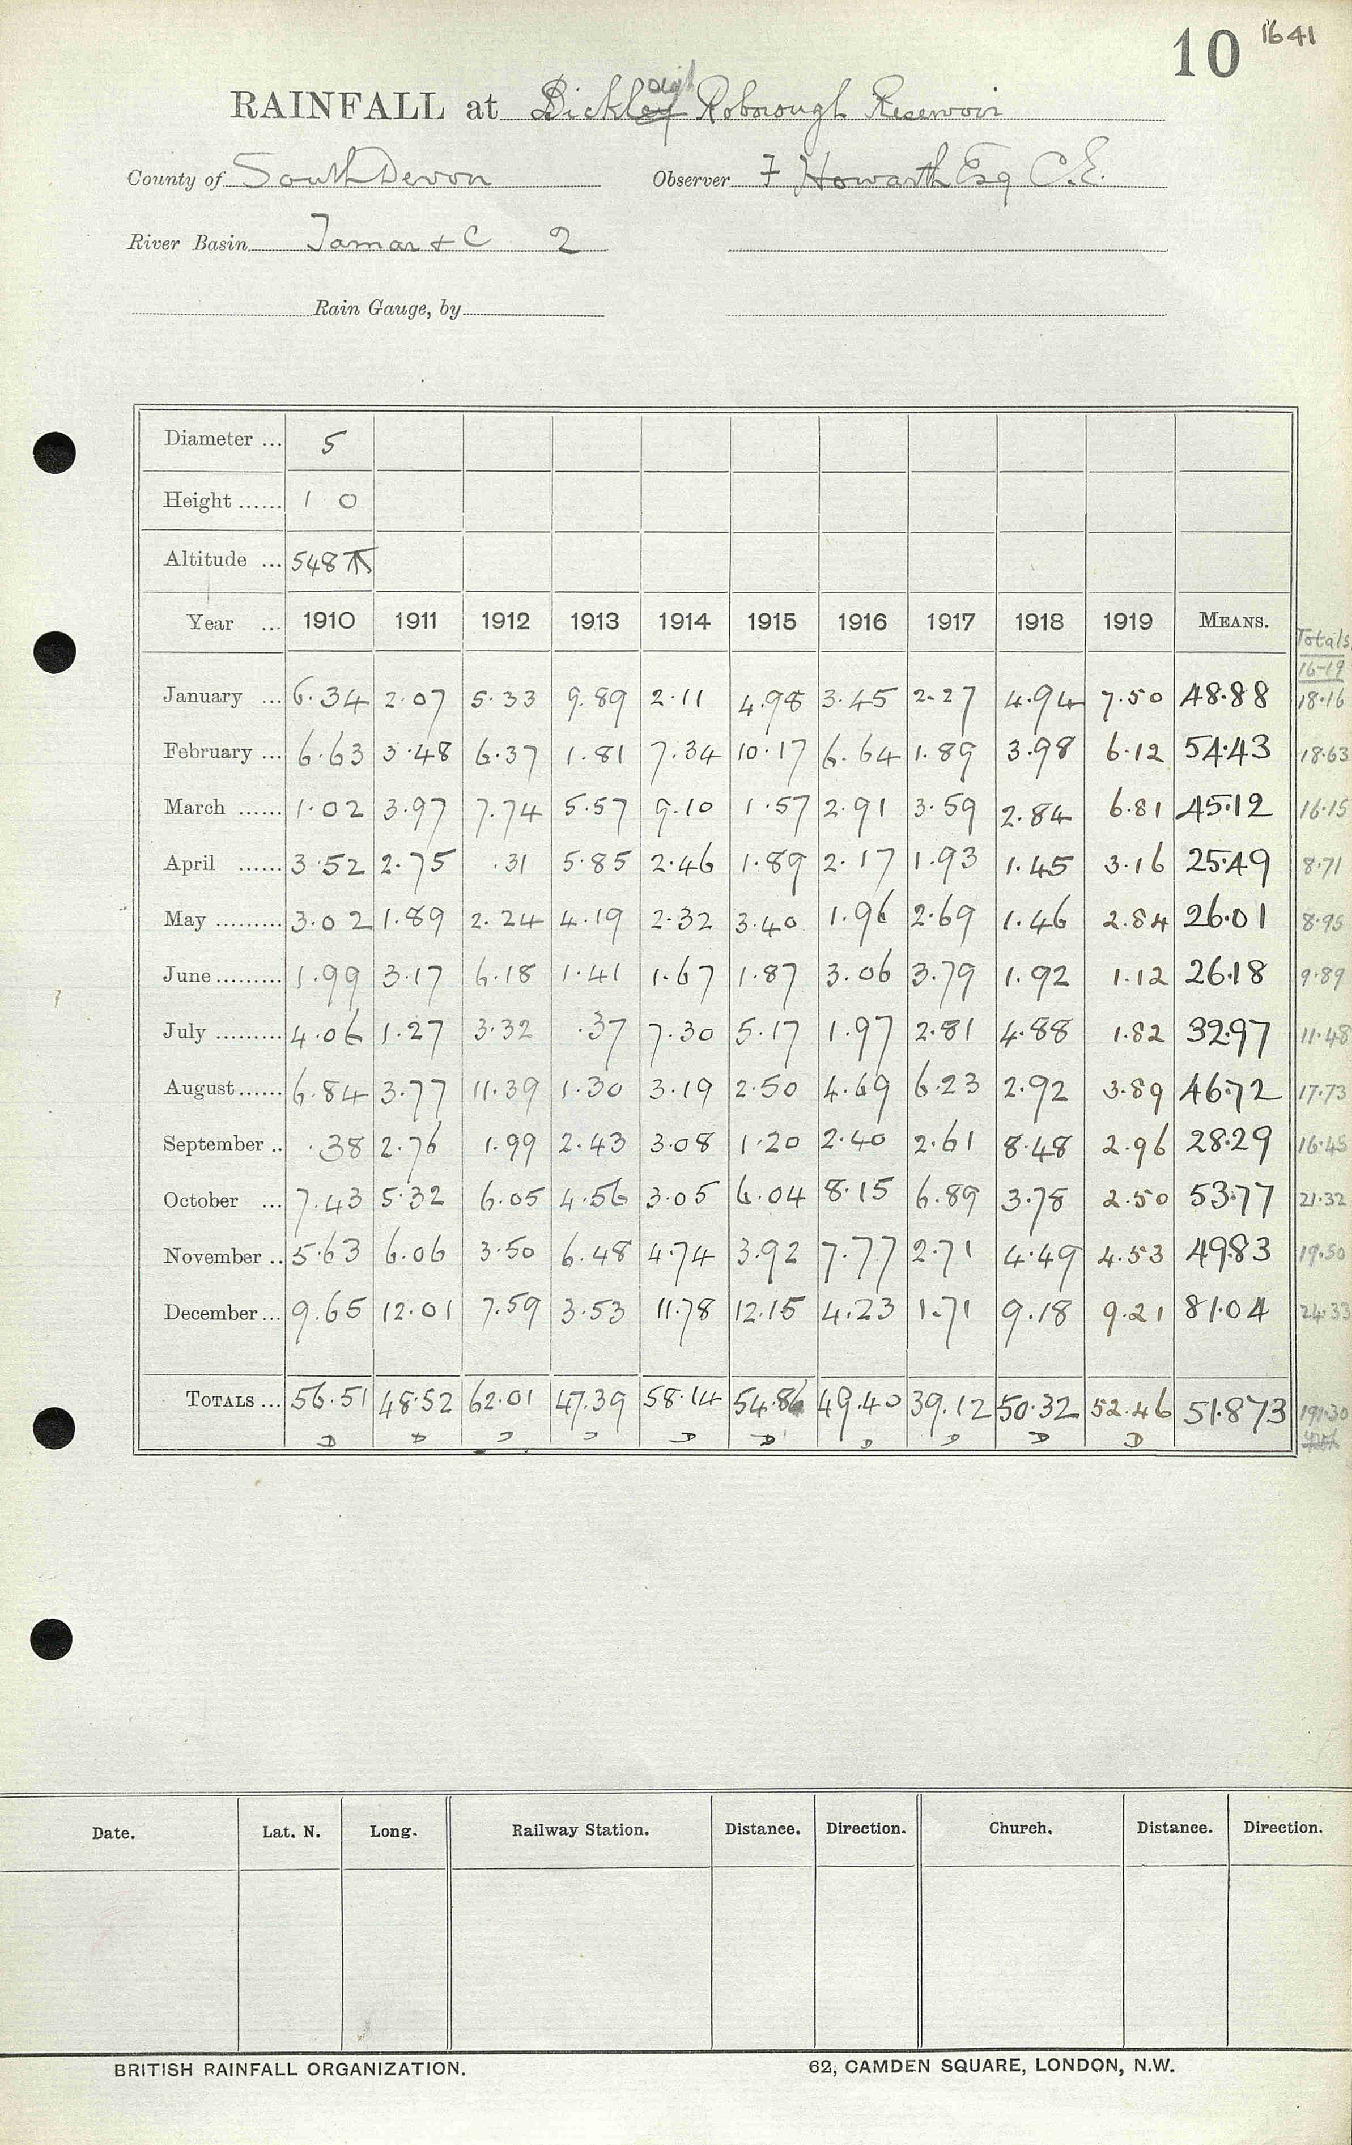 10 1641
RAINFALL at Bickleigh Roborough Reservoir
County of South Devon Observer F Howarth Esq C.E.
River Basin Tamar & C 2
Rain Gauge, by
Diameter ... 5
Height ...... 1 0
Altitude ... 548
Year ... 1910 1911 1912 1913 1914 1915 1916 1917 1918 1919 MEANS. Totals
16-19
January ... 6.34 2.07 5.33 9.89 2.11 4.98 3.45 2.27 4.94 7.50 48.88 18.16
February ... 6.63 3.48 6.37 1.81 7.34 10.17 6.64 1.89 3.98 6.12 54.43 18.63
March ...... 1.02 3.97 7.74 5.57 9.10 1.57 2.91 3.59 2.84 6.81 45.12 16.15
April ...... 3.52 2.75 .31 5.85 2.46 1.89 2.17 1.93 1.45 3.16 25.49 8.71
May ......... 3.02 1.89 2.24 4.19 2.32 3.40 1.96 2.69 1.46 2.84 26.01 8.95
June ......... 1.99 3.17 6.18 1.41 1.67 1.87 3.06 3.79 1.92 1.12 26.18 9.89
July ......... 4.06 1.27 3.32 .37 7.30 5.17 1.97 2.81 4.88 1.82 32.97 11.48
August ...... 6.84 3.77 11.39 1.30 3.19 2.50 4.69 6.23 2.92 3.89 46.72 17.73
September .. .38 2.76 1.99 2.43 3.08 1.20 2.40 2.61 8.48 2.96 28.29 16.45
October ... 7.43 5.32 6.05 4.56 3.05 6.04 8.15 6.89 3.78 2.50 53.77 21.32
November .. 5.63 6.06 3.50 6.48 4.74 3.92 7.77 2.71 4.49 4.53 49.83 19.50
December ... 9.65 12.01 7.59 3.53 11.78 12.15 4.23 1.71 9.18 9.21 81.04 24.33
TOTALS ... 56.51 48.52 62.01 47.39 58.14 54.86 49.40 39.12 50.32 52.46 51.873 191.30
D D D D D D D D D D
Date. Lat. N. Long. Railway Station. Distance. Direction. Church. Distance. Direction.
BRITISH RAINFALL ORGANIZATION. 62, CAMDEN SQUARE, LONDON, N.W.